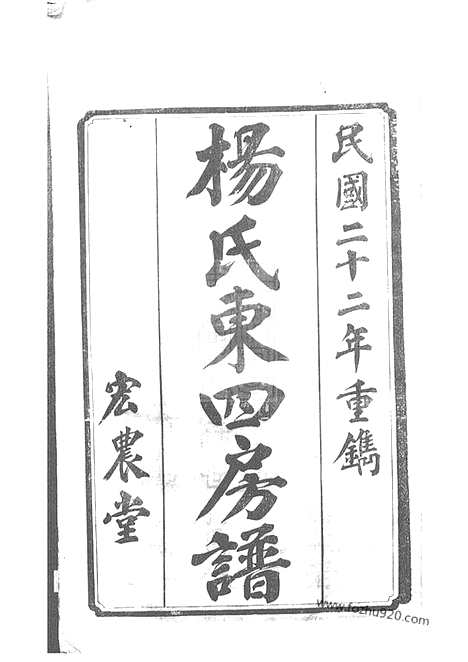 民國二十二年重鐫
楊氏東四房譜
宏農堂
www.fozhu920.com